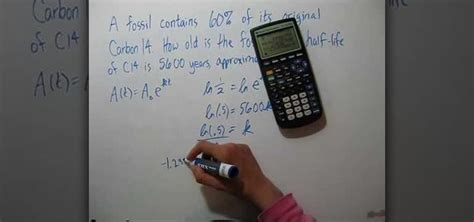 A fossil contains 60% of its original
Carbon 14. How old is the fo half-life
of C14 is 5600 years, approxima
A(t) = A₀e^kt
ln 1/2 = ln e
ln(.5) = 5600k
ln(.5) = k
-1.2